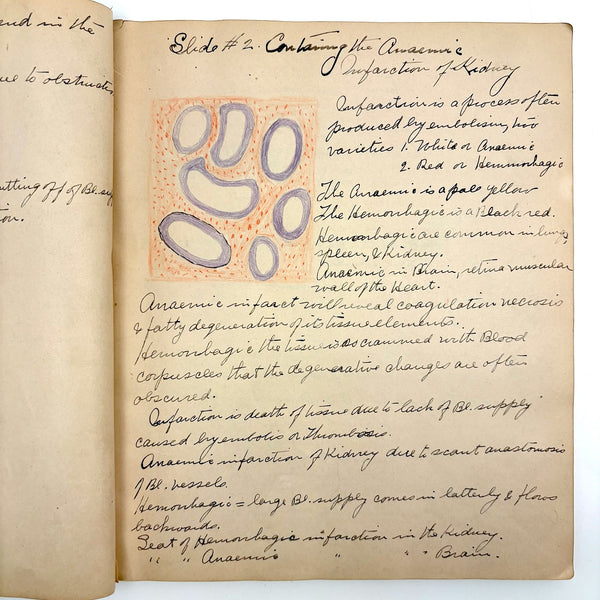 and in the
ue to obstructio
utting off of Bl. sup
ion.
Slide #2. Containing the Anaemic
Infarction of Kidney
Infarction is a process often
produced by embolism, two
varieties 1. White or Anaemic
2. Red or Hemmorhagic
The Anaemic is a pale yellow
The Hemorhagic is a Black red.
Hemorhagic are common in lung,
spleen, & Kidney.
Anaemic in Brain, retina muscular
wall of the Heart.
Anaemic infarct will reveal coagulation necrosis
& fatty degeneration of its tissue elements.
Hemorhagic the tissue is so crammed with Blood
corpuscles that the degenerative changes are often
obscured.
Infarction is death of tissue due to lack of Bl. supply
caused by embolis or Thrombosis.
Anaemic infarction of Kidney due to scant anastomosis
of Bl. vessels.
Hemorhagic = large Bl. supply comes in latterly & flows
backwards.
Seat of Hemorhagic infarction in the Kidney.
" " Anaemic " " " Brain.